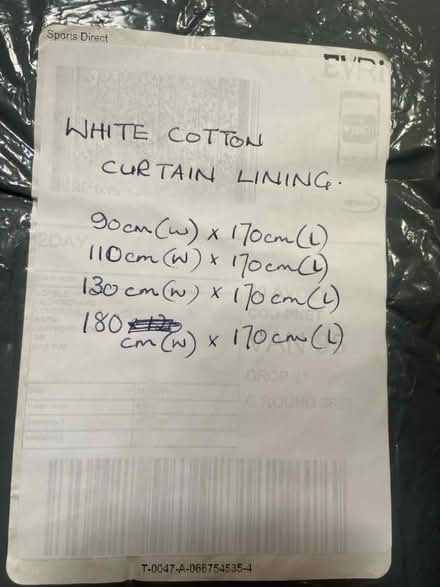 Sports Direct
EVRi
WHITE COTTON
CURTAIN LINING.
90cm (W) x 170cm (L)
110cm (W) x 170cm (L)
130cm (W) x 170cm (L)
180
cm (W) x 170cm (L)
DROP AT
GROUND
T-0047-A-066754535-4